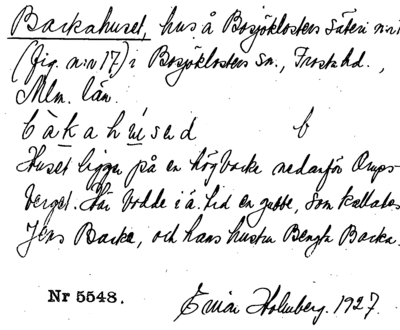 Backahuset, hus å Bosjöklosters säteri nr 1
(fig. n:r 17) i Bosjöklosters sn., Frosta hd.,
Mlm. län.
bàkahúsəd b
Huset ligger på en hög backe nedanför Orups-
berget. Här bodde i ä. tid en gubbe, som kallades
Jens Backa, och hans hustru Bengta Backa.
Nr 5548. Einar Holmberg. 1927.